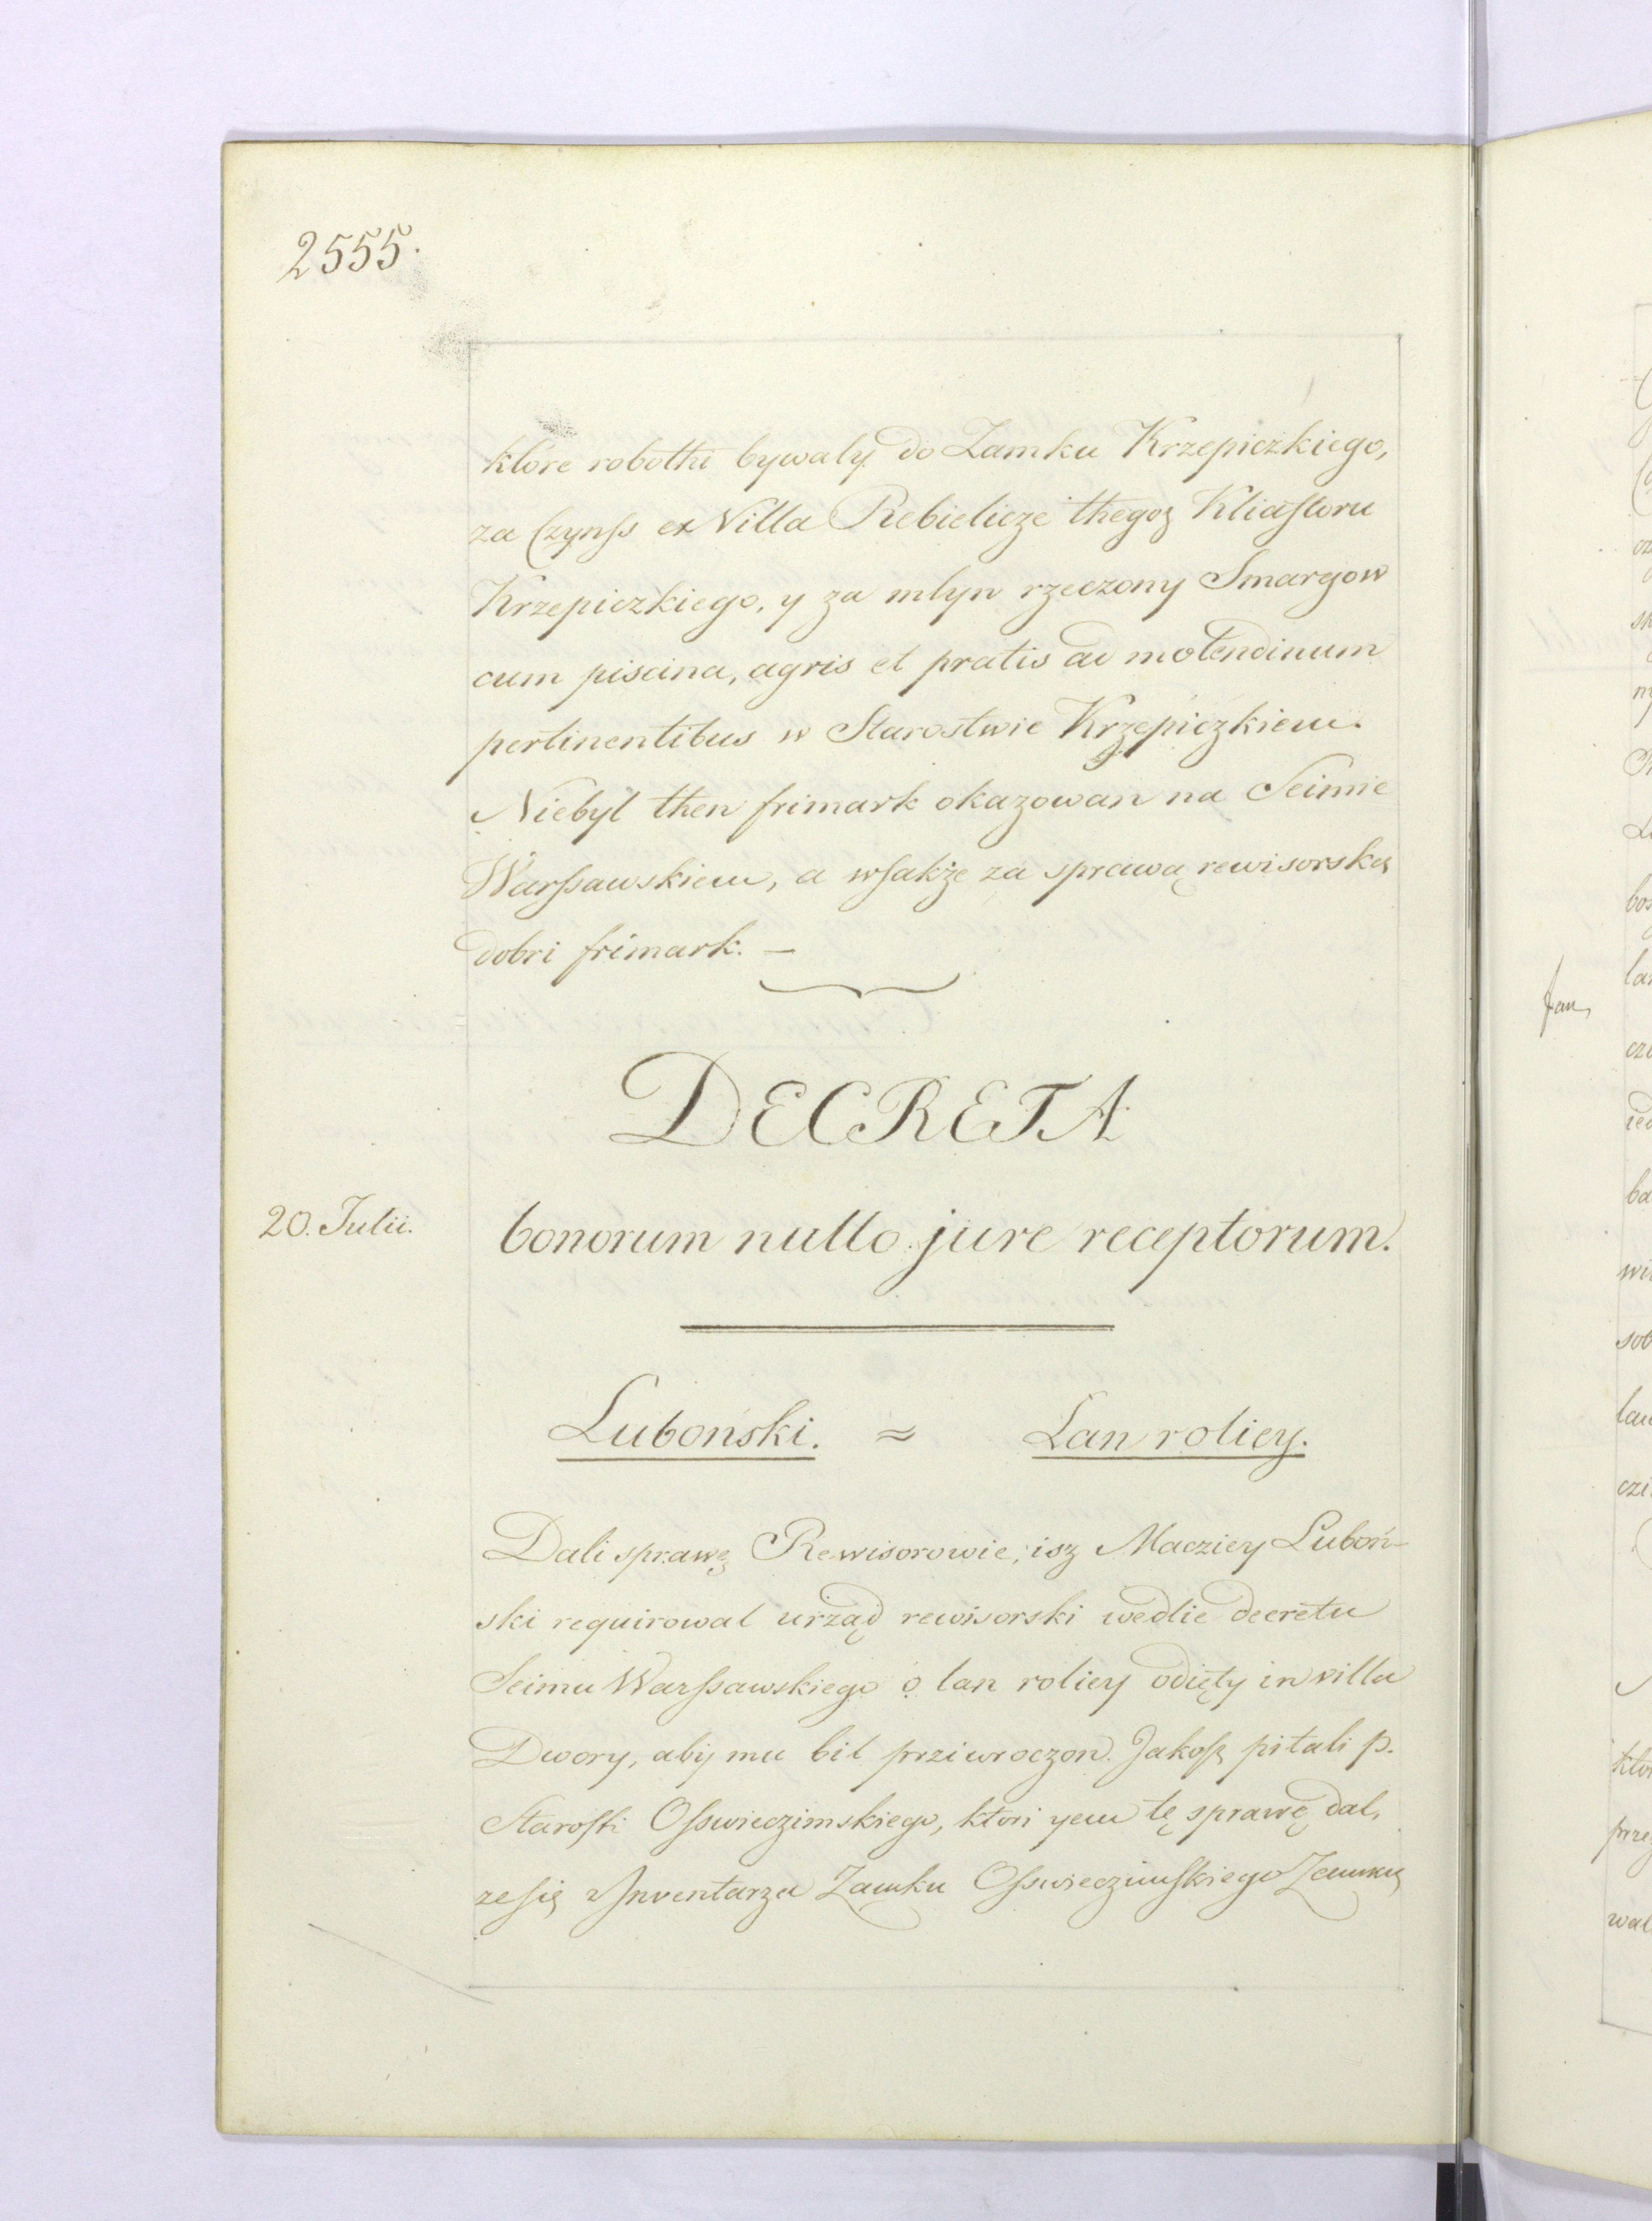 2555.
które robothi bywały do Zamku Krzepiczkiego,
za Czynſs ex Villa Rebielicze thegoz Kliaſtoru
Krzepiczkiego, y za młyn rzeczony Smargow
cum piscina, agris et pratis ad molendinum
pertinentibus w Starostwie Krzepiczkiem.
Niebył then frimark okazowan na Seimie
Warſsawskiem, a wſakże za sprawą rewisorską
dobri frimark. —
DECRETA
20. Julii.
bonorum nullo jure receptorum.
Luboński. = Łan roliey.
Dali sprawę Rewisorowie, isz Macziey Luboń-
ski requirował urząd rewisorski wedlie decretu
Seimu Warſsawskiego o łan roliey odięty in villa
Dwory, aby mu bił prziwroczon. Jakoſz pitali p.
Staroſti Oſswieczimskiego, ktori yem tę sprawę dał,
zeſię z Inventarza Zamku Oſswieczimſkiego